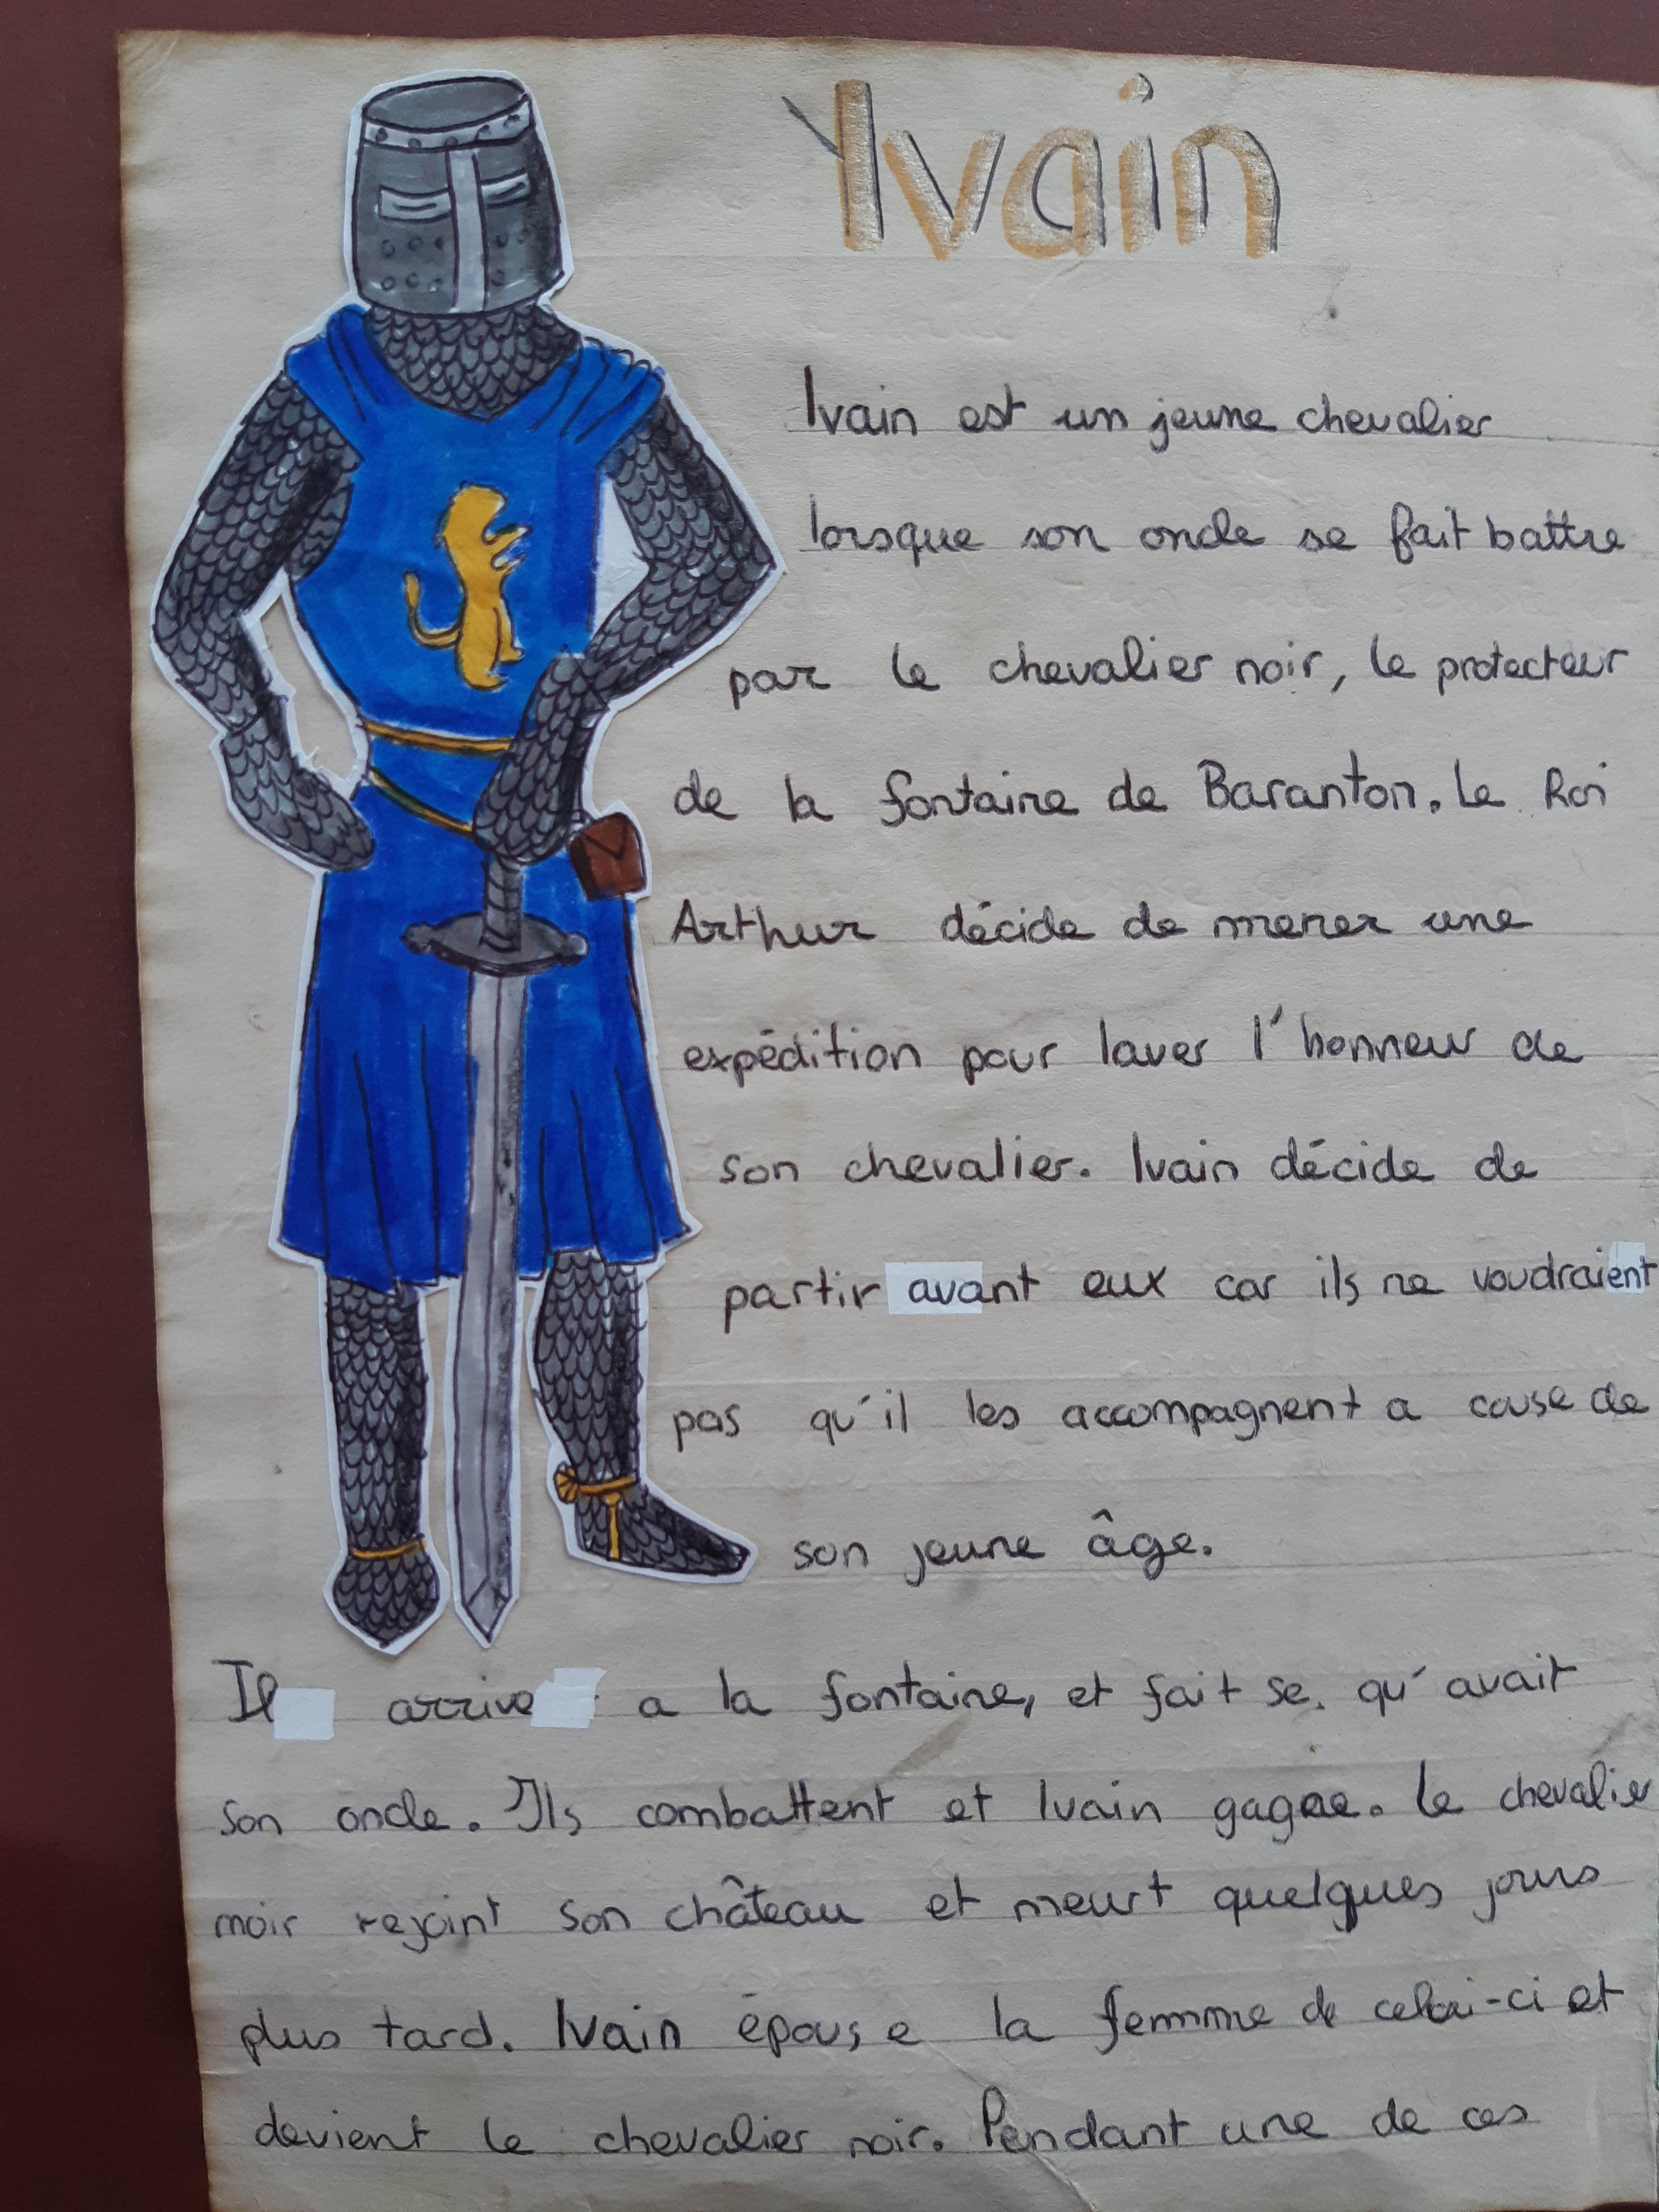 Yvain
Ivain est un jeune chevalier
lorsque son oncle se fait battre
par le chevalier noir, le protecteur
de la fontaine de Baranton. Le Roi
Arthur décide de mener une
expédition pour laver l'honneur de
son chevalier. Ivain décide de
partir avant eux car ils ne voudraient
pas qu'il les accompagnent a cause de
son jeune âge.
Il arrive a la fontaine, et fait se qu'avait
son oncle. Ils combattent et Ivain gagne. Le chevalier
noir rejoint son château et meurt quelques jours
plus tard. Ivain épouse la femme de celui-ci et
devient le chevalier noir. Pendant une de ces